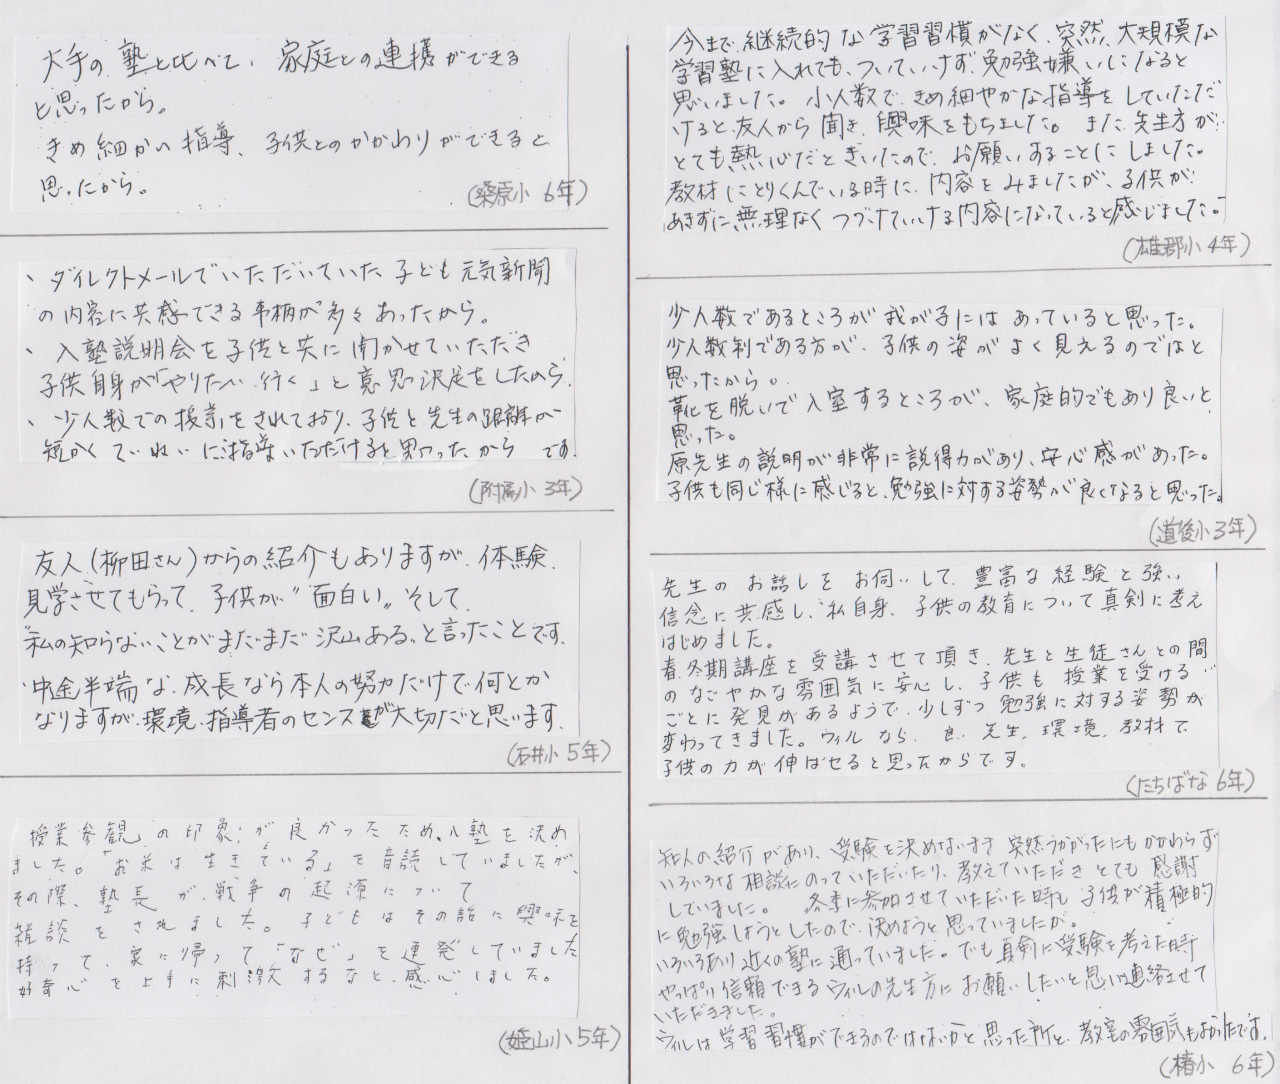 大手の塾と比べて、家庭との連携ができる
と思ったから。
きめ細かい指導、子供とのかかわりができると
思ったから。
(桑原小 6年)
、ダイレクトメールでいただいていた子ども元気新聞
の内容に共感できる事柄が多々あったから。
、入塾説明会を子供と共に聞かせていただき
子供自身が「やりたい、行く」と意思決定をしたから。
、少人数での授業をされており、子供と先生の距離が
短かくていねいに指導いただけると思ったから です。
(附属小 3年)
友人(柳田さん)からの紹介もありますが、体験、
見学させてもらって、子供が“面白い”そして、
“私の知らないことがまだまだ沢山ある”と言ったことです。
“中途半端な成長なら本人の努力だけで何とか
なりますが、環境、指導者のセンスが大切だと思います。
(石井小 5年)
「授業参観」の印象が良かったため、入塾を決め
ました。「お米は生きている」を音読していましたが、
その際、塾長が、戦争の起源について
雑談をされました。子どもはその話に興味を
持って、家に帰って「なぜ」を連発していました
好奇心を上手に刺激するなと、感心しました。
(姫山小 5年)
今まで、継続的な学習習慣がなく、突然、大規模な
学習塾に入れても、ついていけず、勉強嫌いになると
思いました。少人数で、きめ細やかな指導をしていただ
けると、友人から聞き、興味をもちました。また、先生方が
とても熱心だときいたので、お願いすることにしました。
教材にとりくんでいる時に、内容をみましたが、子供が
あきずに無理なくつづけていける内容になっていると感じました。
(雄郡小 4年)
少人数であるところが我が子にはあっていると思った。
少人数制である方が、子供の姿がよく見えるのではと
思ったから。
靴を脱いで入室するところが、家庭的でもあり良いと
思った。
原先生の説明が非常に説得力があり、安心感があった。
子供も同じ様に感じると、勉強に対する姿勢が良くなると思った。
(道後小 3年)
先生のお話しをお伺いして、豊富な経験と強い
信念に共感し、私自身、子供の教育について真剣に考え
はじめました。
春、冬期講座を受講させて頂き、先生と生徒さんとの間
のなごやかな雰囲気に安心し、子供も授業を受ける
ごとに発見があるようで、少しずつ勉強に対する姿勢が
変わってきました。ウィルなら、良い先生、環境、教材で、
子供の力が伸ばせると思ったからです。
(たちばな 6年)
知人の紹介があり、受験を決めないまま突然うかがったにもかかわらず
いろいろな相談にのっていただいたり、教えていただきとても感謝
していました。冬季に参加させていただいた時も子供が積極的
に勉強しようとしたので、決めようと思っていましたが。
いろいろあり近くの塾に通っていました。でも真剣に受験を考えた時
やっぱり信頼できるウィルの先生方にお願いしたいと思い連絡させて
いただきました。
ウィルは学習習慣ができるのではないかと思った所と、教室の雰囲気もよかったです。
(椿小 6年)